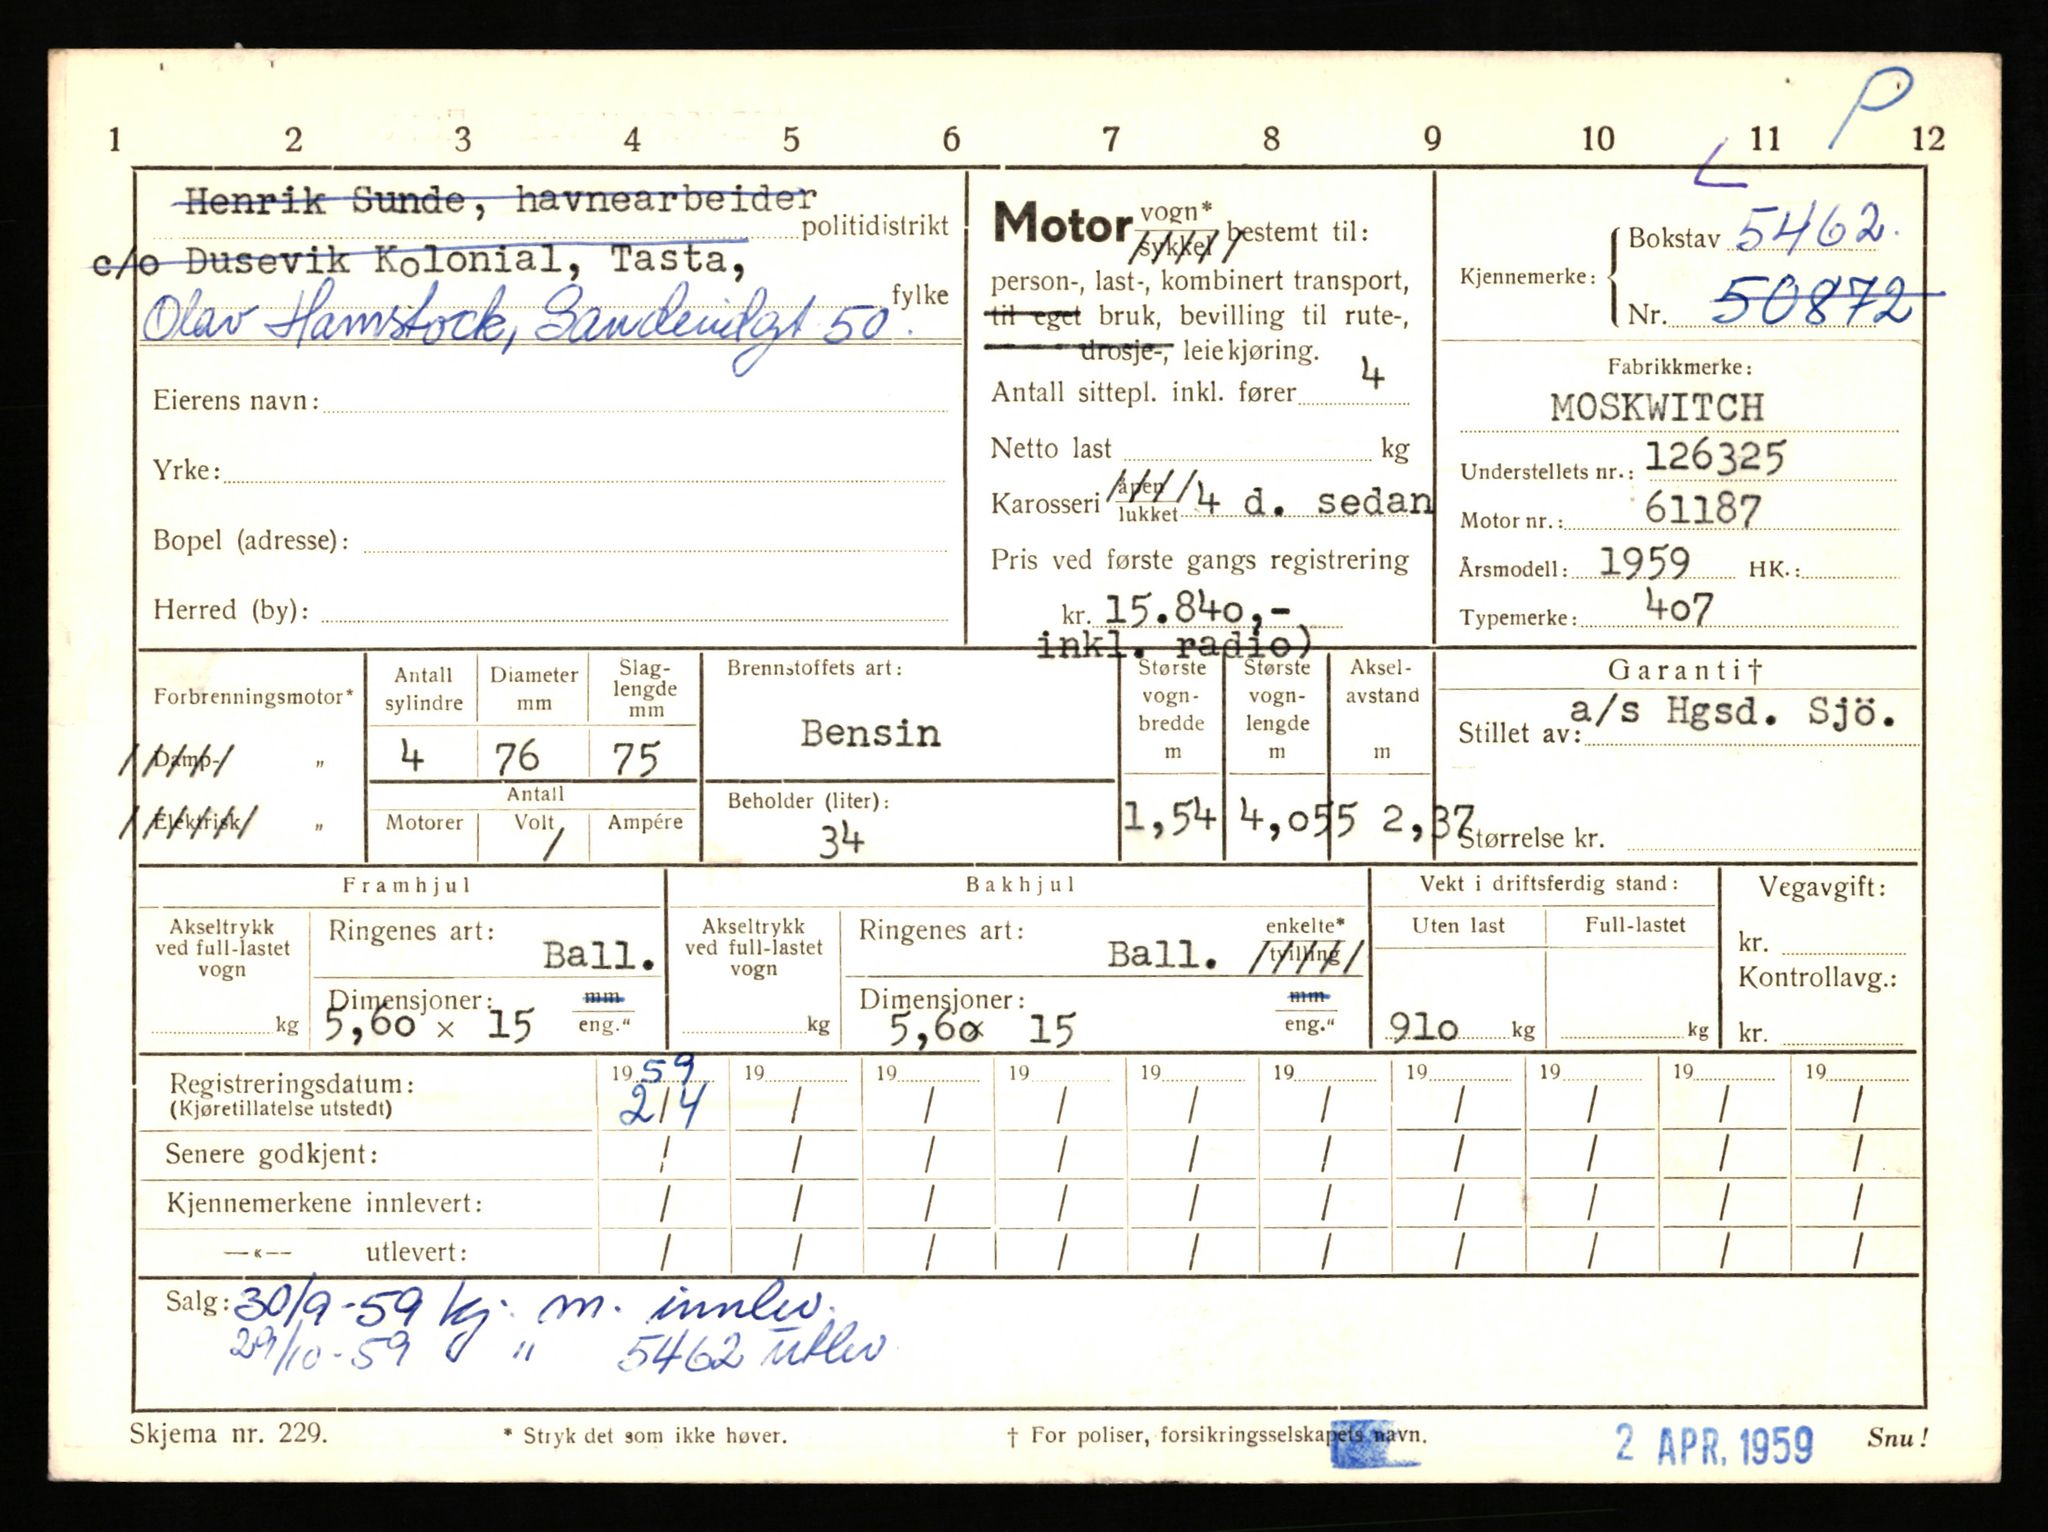 P
1 2 3 4 5 6 7 8 9 10 11 12
Henrik Sunde, havnearbeider
politidistrikt
c/o Dusevik Kolonial, Tasta,
fylke
Olav Hamstock, Sandeidgt 50.
Eierens navn:
Yrke:
Bopel (adresse):
Herred (by):
Motor vogn* / sykkel bestemt til:
person-, last-, kombinert transport,
til eget bruk, bevilling til rute-,
drosje-, leiekjøring.
Antall sittepl. inkl. fører 4
Netto last kg
Karosseri åpen / lukket 4 d. sedan
Pris ved første gangs registrering
kr. 15.840,-
inkl. radio)
Kjennemerke: Bokstav 5462.
Nr. 50872
Fabrikkmerke:
MOSKWITCH
Understellets nr.: 126325
Motor nr.: 61187
Årsmodell: 1959 HK.:
Typemerke: 407
Forbrenningsmotor*
Damp- „
Elektrisk „
Antall sylindre
4
Diameter mm
76
Slag-
lengde
mm
75
Antall
Motorer Volt / Ampére
Brennstoffets art:
Bensin
Beholder (liter):
34
Største
vogn-
bredde
m
1,54
Største
vogn-
lengde
m
4,055
Aksel-
avstand
m
2,37
Garanti†
Stillet av: a/s Hgsd. Sjö.
Størrelse kr.
Framhjul
Akseltrykk
ved full-lastet
vogn
kg
Ringenes art: Ball.
Dimensjoner: mm
5,60 x 15 eng."
Bakhjul
Akseltrykk
ved full-lastet
vogn
kg
Ringenes art: Ball. enkelte* / tvilling
Dimensjoner: mm
5,60x 15 eng."
Vekt i driftsferdig stand:
Uten last Full-lastet
910 kg kg
Vegavgift:
kr.
Kontrollavg.:
kr.
Registreringsdatum: 1959 19 19 19 19 19 19 19 19 19
(Kjøretillatelse utstedt) 2/4 / / / / / / / / /
Senere godkjent: / / / / / / / / / /
Kjennemerkene innlevert: / / / / / / / / / /
—«— utlevert: / / / / / / / / / /
Salg: 30/9-59 kj. m. innlev.
29/10-59 " 5462 utlev
Skjema nr. 229. * Stryk det som ikke høver. † For poliser, forsikringsselskapets navn. 2 APR. 1959 Snu!